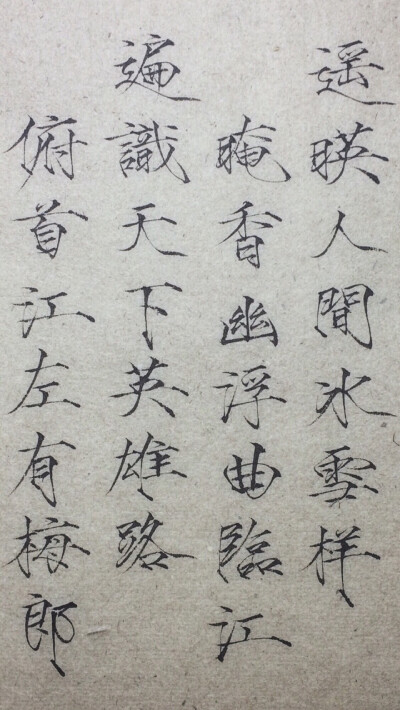 遥暎人間冰雪样
晻香幽浮曲臨江
遍識天下英雄路
俯首江左有梅郎